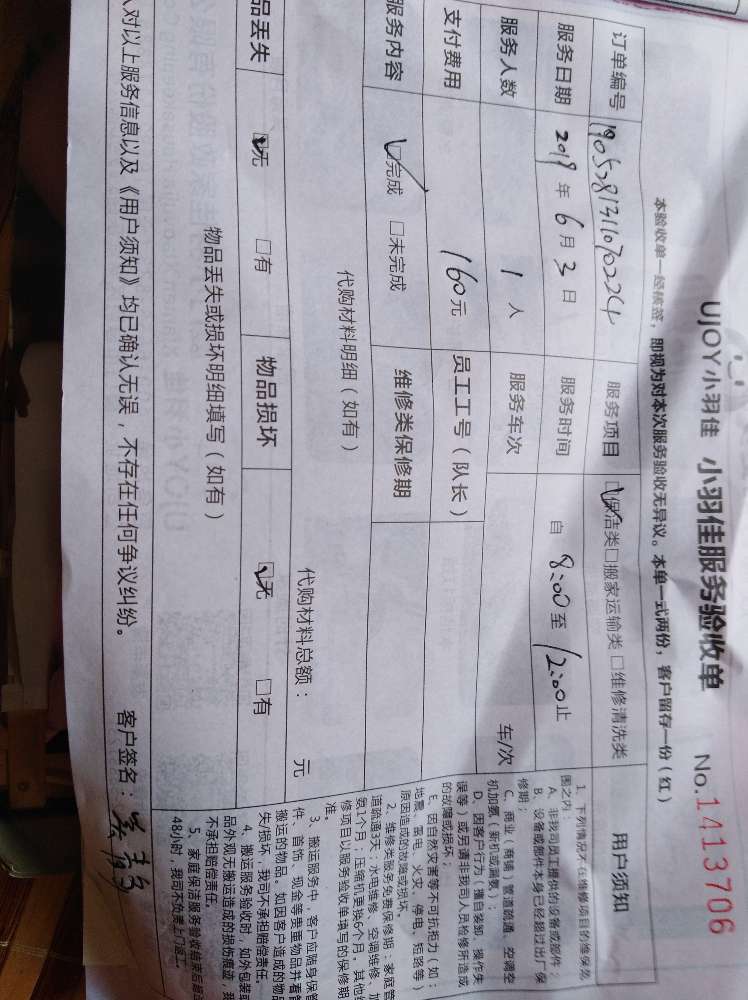 UJOY小羽佳 小羽佳服务验收单 No.1413706
本验收单一经核签，即视为对本次服务验收无异议。本单一式两份，客户留存一份（红）
订单编号 服务项目 ☑保洁类□搬家运输类 □维修清洗类
服务日期 2019 年 6 月 3 日 服务时间 自 8:00 至 12:00 止
服务人数 1 人 服务车次 车/次
支付费用 160元 员工工号（队长）
服务内容 ☑完成 □未完成 维修类保修期
代购材料明细（如有）
代购材料总额： 元
品丢失 ☑无 □有 物品损坏 ☑无 □有
物品丢失或损坏明细填写（如有）
人对以上服务信息以及《用户须知》均已确认无误，不存在任何争议纠纷。 客户签名：
用户须知
1、下列情况不在维修项目的维保范
围之内：
A、非我司员工提供的设备或部件；
B、设备或部件本身已经超过出厂保
修期；
C、商业（商铺）管道疏通、空调空
机加氟（新机或漏氟）；
D、因客户行为（擅自装卸、操作失
误等）或另请非我司人员检修所造成
的故障或损坏。
E、因自然灾害等不可抗拒力（如：
地震、雷电、火灾、停电、短路等）
原因造成的故障或损坏。
2、维修类服务免费保修期：家庭管
道疏通3天；水电维修、空调维修、加
氨1个月；压缩机更换6个月。其他维
修项目以服务验收单填写的保修期
准。
3、搬运服务中，客户应随身保管
件、首饰、现金等贵重物品并看管
搬运的物品。如因客户造成的物品
失损坏，我司不承担赔偿责任。
4、搬运服务验收时，如外包装或
品外观无搬运造成的损伤痕迹，我
不承担赔偿责任。
5、家庭保洁服务验收结束后超过
48小时，我司不负责上门返工